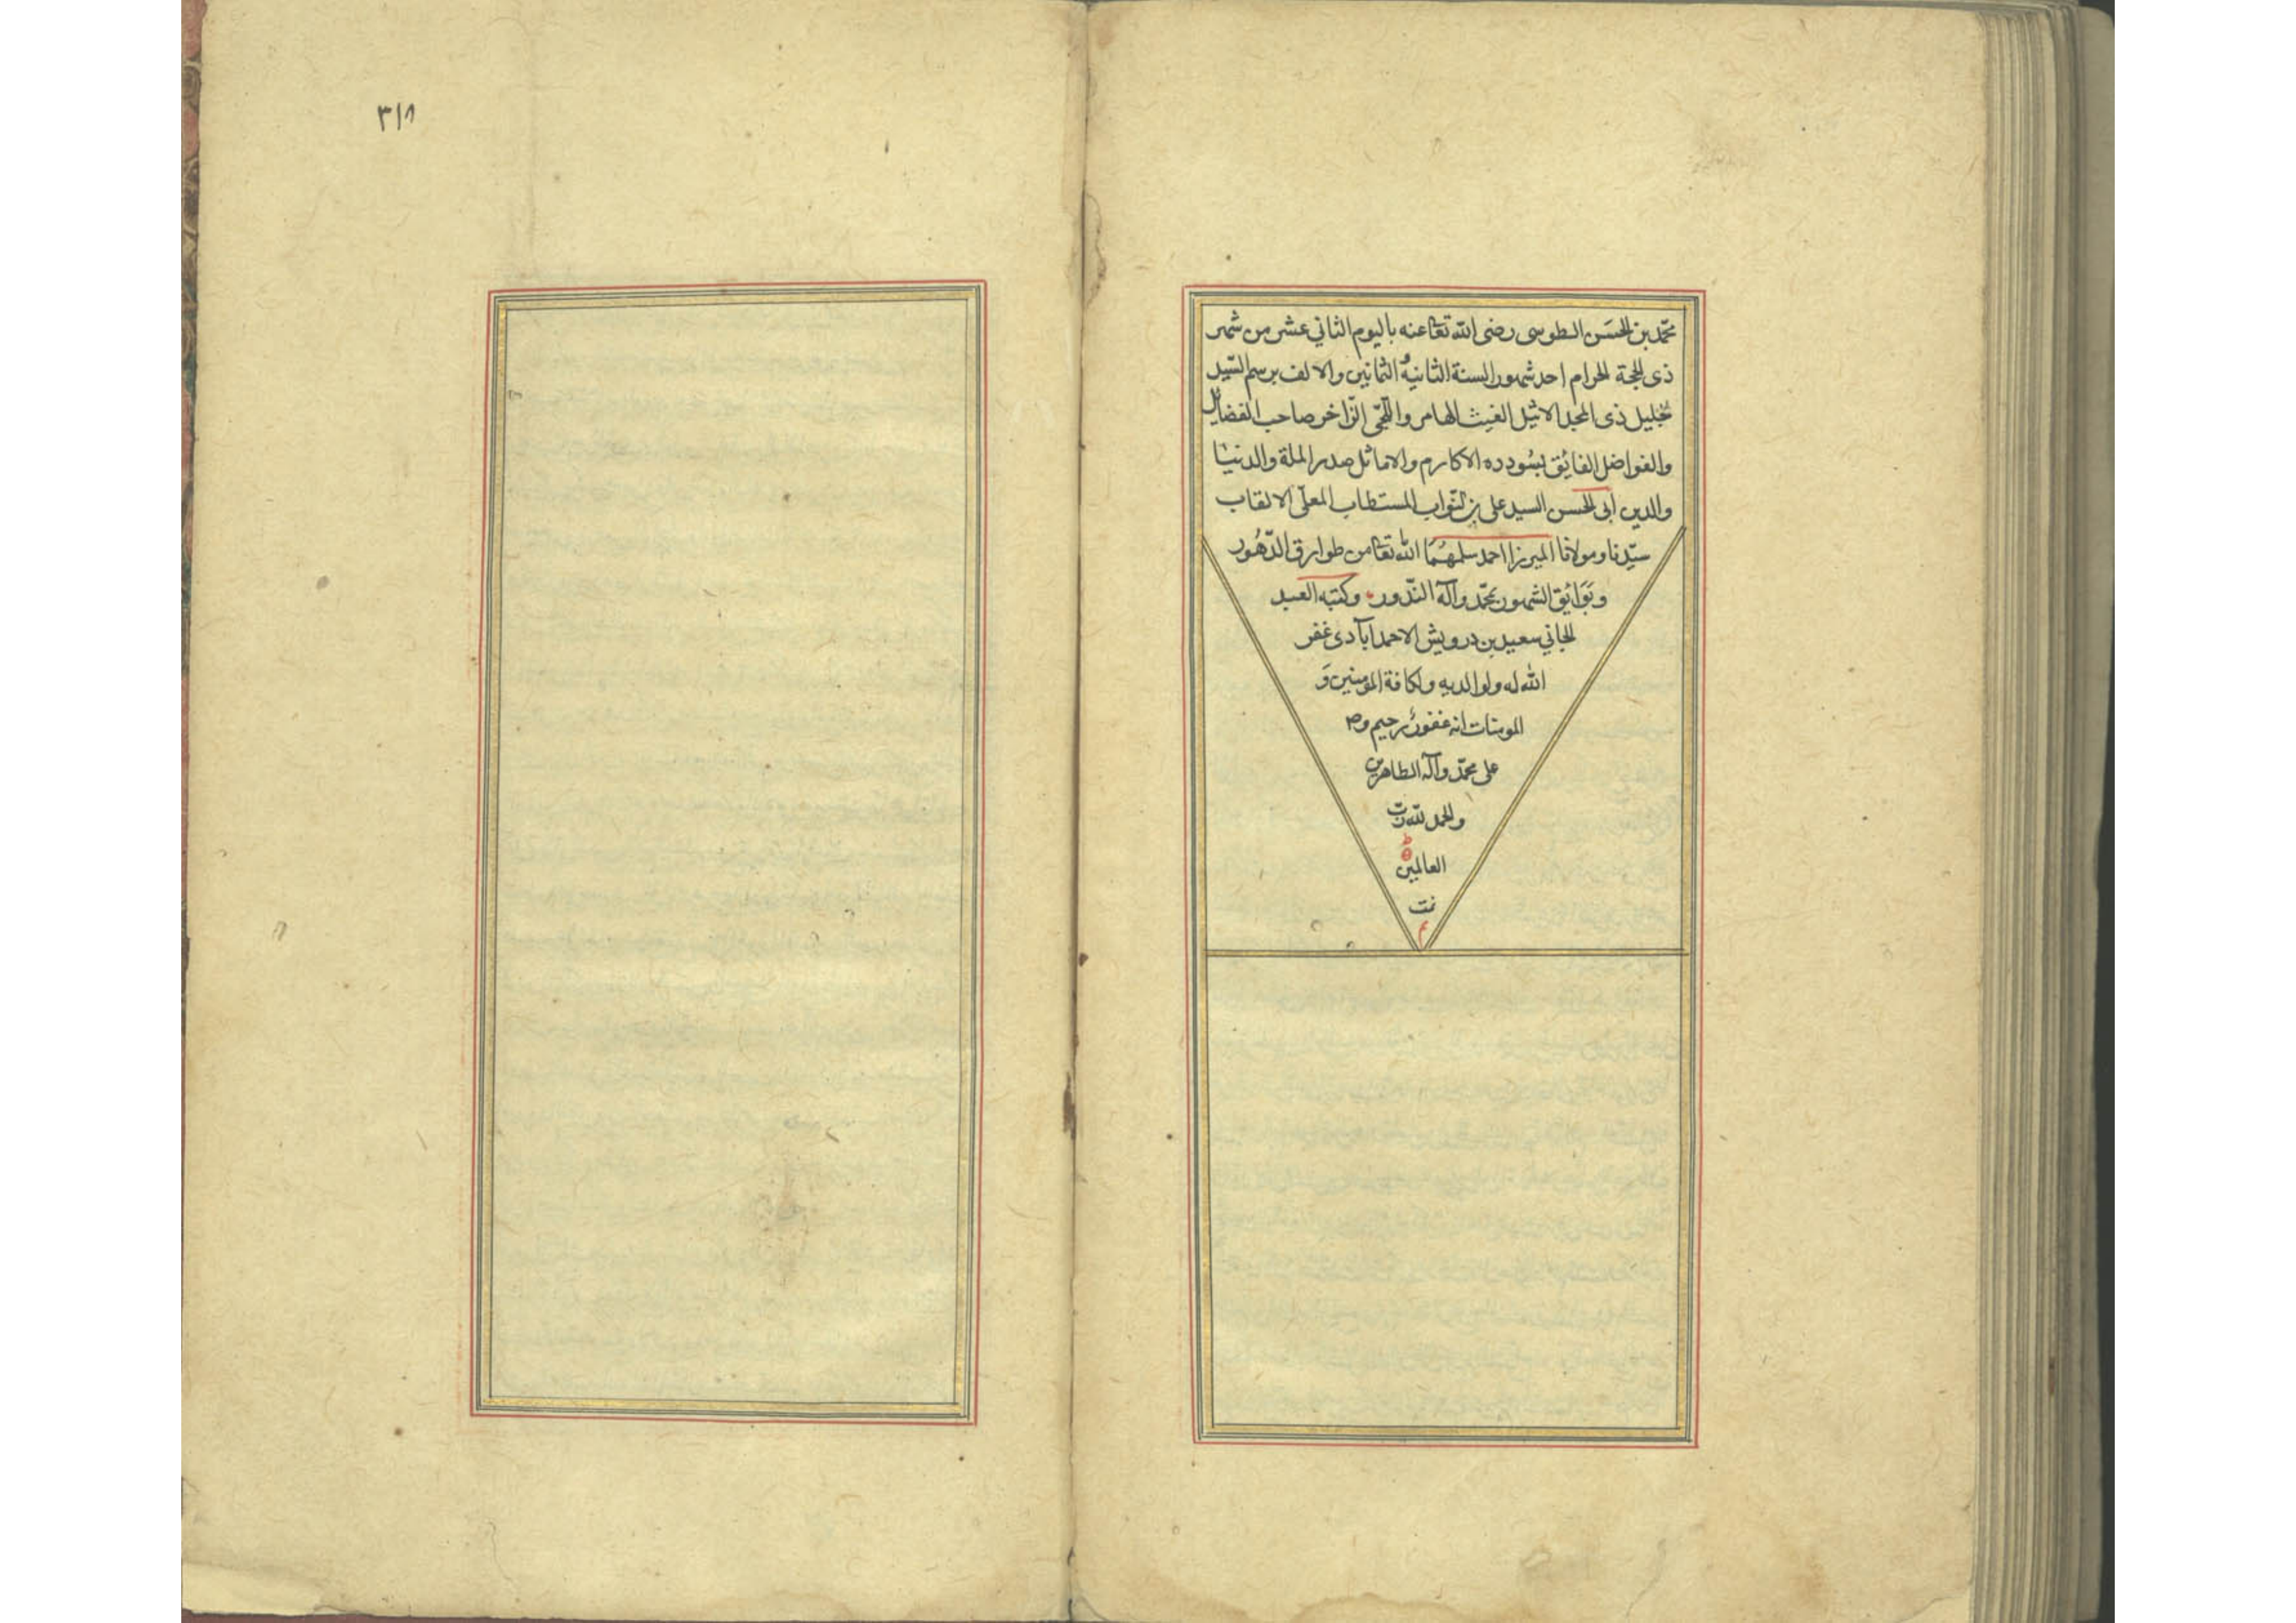 محمّد بن الحسَن الطوسى رضى الله تعا عنه باليوم الثاني عشر من شهر
ذى الحجة الحرام احد شهور السنة الثانيةُ الثمانين والالف برسم السّيد
الجليل ذى المجد الاثيل الغيث الهامر واللّجّى الزّاخر صاحب الفضايل
والفواضل الفائق بسُودده الاكارم والاماثل صدر الملة والدنيا
والدين أبى الحسن السيد على بن النّواب المستطاب المعلّى الالقاب
سيّدنا ومولانا الميرزا احمد سلمهُمَا الله تعا من طوارق الدّهُور
وبَوَائق الشهور بمحمّد وآله البّدور وكتبه العبد
الجاني سعيد بن درويش الاحمد اباَدى غفر
الله له ولوالديه ولكافة المؤمنين وَ
المومنات انه غفورٌ رحيم وص
على محمّد وآله الطاهرين
والحمد لله ربّ
العالمين
تمت
م
٣١٨